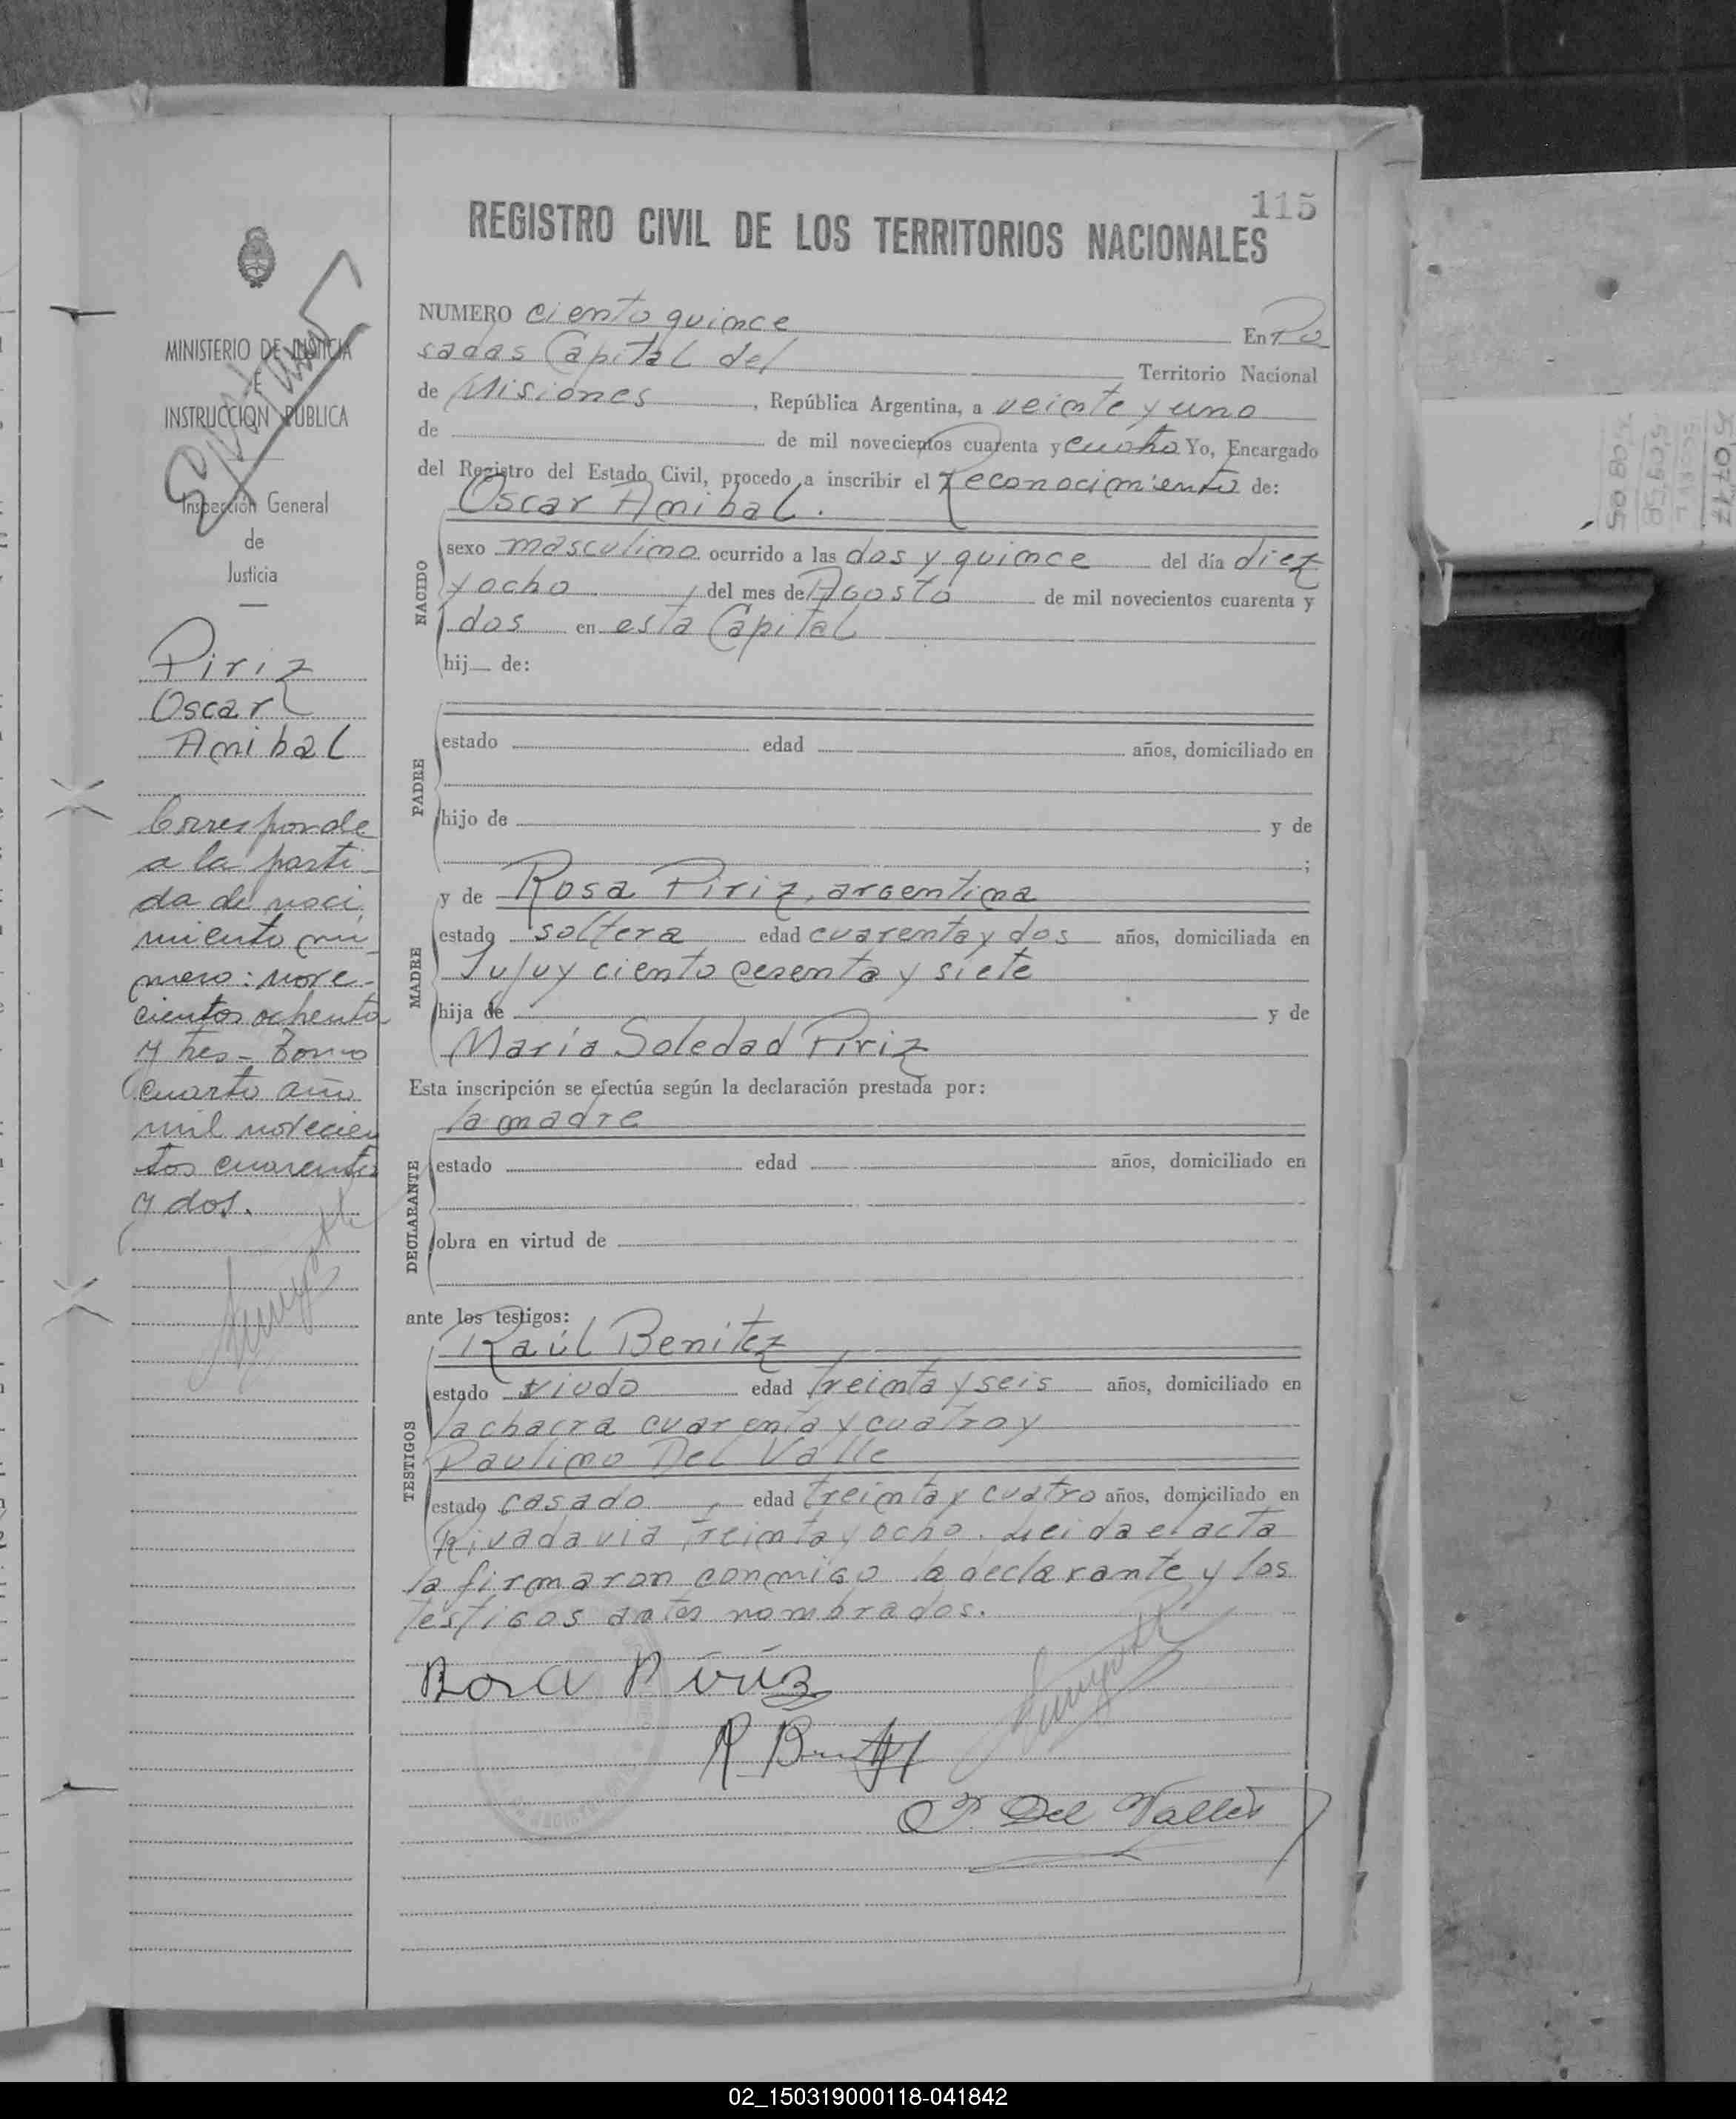 115
REGISTRO CIVIL DE LOS TERRITORIOS NACIONALES
MINISTERIO DE JUSTICIA
E
INSTRUCCION PUBLICA
Inspección General
de
Justicia
Piriz
Oscar
Anibal
Corresponde
a la parti
da de naci
miento nu
mero: nove-
cientos ochenta
y tres - Tomo
cuarto año
mil novecien
tos cuarenta
y dos.
NUMERO ciento quince En Po
sadas Capital del Territorio Nacional
de Misiones, República Argentina, a veinte y uno
de de mil novecientos cuarenta y cuatro Yo, Encargado
del Registro del Estado Civil, procedo a inscribir el Reconocimiento de:
Oscar Anibal.
NACIDO
sexo masculino ocurrido a las dos y quince del día diez
y ocho del mes de Agosto de mil novecientos cuarenta y
dos en esta Capital
hij de:
PADRE
estado edad años, domiciliado en
hijo de y de
;
MADRE
y de Rosa Piriz, argentina
estado soltera edad cuarenta y dos años, domiciliada en
Jujuy ciento cesenta y siete
hija de y de
María Soledad Piriz
Esta inscripción se efectúa según la declaración prestada por:
la madre
DECLARANTE
estado edad años, domiciliado en
obra en virtud de
ante los testigos:
TESTIGOS
Raúl Benitez
estado viudo edad treinta y seis años, domiciliado en
la chacra cuarenta y cuatro y
Paulino Del Valle
estado casado, edad treinta y cuatro años, domiciliado en
Rivadavia treinta y ocho. Leida el acta
la firmaron conmigo la declarante y los
testigos antes nombrados.
Rosa Piriz
R Benitez
P. Del Valle
50777
50958
508 05
02_150319000118-041842